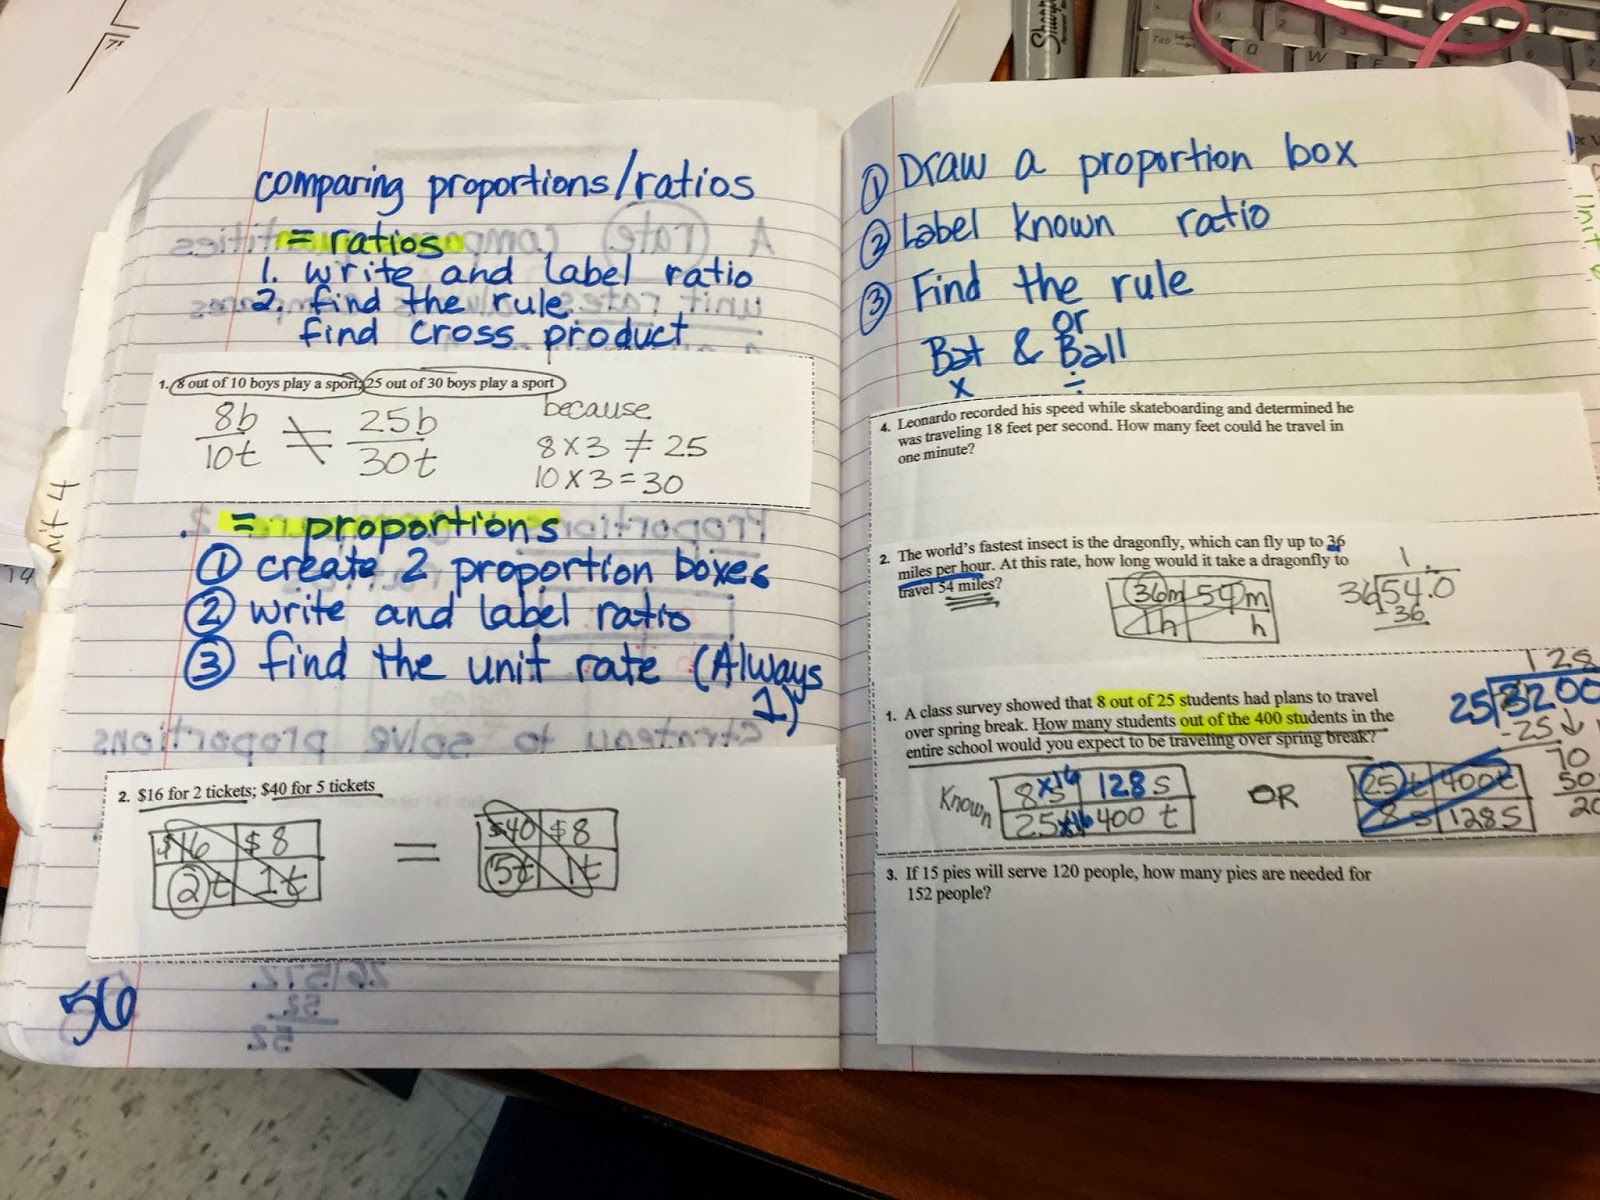 comparing proportions/ratios
= ratios
1. write and label ratio
2. find the rule
find cross product
1. 8 out of 10 boys play a sport; 25 out of 30 boys play a sport
8b/10t ≠ 25b/30t
because
8 x 3 ≠ 25
10 x 3 = 30
= proportions
① create 2 proportion boxes
② write and label ratio
③ find the unit rate (Always
1)
2. $16 for 2 tickets; $40 for 5 tickets
$16 $8
2t 1t
=
$40 $8
5t 1t
56
Unit 4
① Draw a proportion box
② Label known ratio
③ Find the rule
or
Bat & Ball
x ÷
4. Leonardo recorded his speed while skateboarding and determined he
was traveling 18 feet per second. How many feet could he travel in
one minute?
2. The world's fastest insect is the dragonfly, which can fly up to 36
miles per hour. At this rate, how long would it take a dragonfly to
travel 54 miles?
36m 54m
1h h
1.
36)54.0
-36
1. A class survey showed that 8 out of 25 students had plans to travel
over spring break. How many students out of the 400 students in the
entire school would you expect to be traveling over spring break?
128
25)3200
-25
70
50
20
Known
8 x16 s 128 s
25 x16 400 t
OR
25 t 400t
8 s 128 s
3. If 15 pies will serve 120 people, how many pies are needed for
152 people?
Sharpie
Tab
Q
W